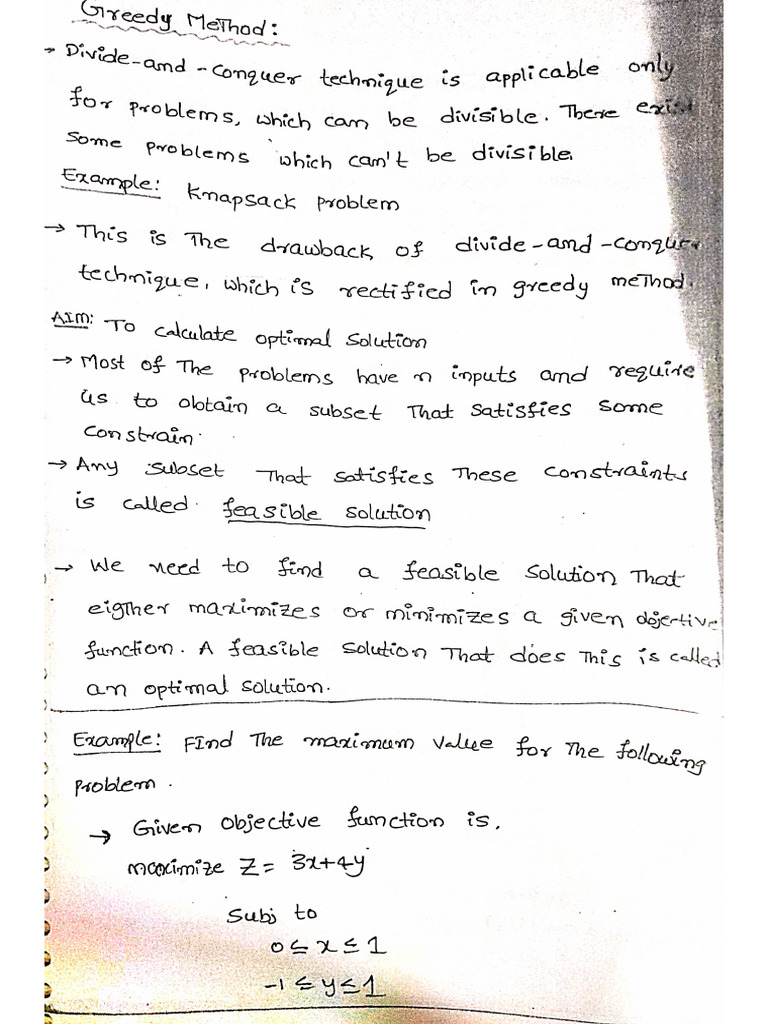 Greedy Method:
→ Divide-and-conquer technique is applicable only
for problems, which can be divisible. There exist
some problems which can't be divisible.
Example: Knapsack problem
→ This is the drawback of divide-and-conquer
technique, which is rectified in greedy method.
AIM: To calculate optimal solution
→ Most of the problems have n inputs and require
us to obtain a subset that satisfies some
constrain.
→ Any subset that satisfies these constraints
is called feasible solution
→ We need to find a feasible solution that
eigther maximizes or minimizes a given objective
function. A feasible solution that does this is called
an optimal solution.
Example: Find the maximum value for the following
problem.
→ Given objective function is,
maximize Z = 3x+4y
Subj to
0 ≤ x ≤ 1
-1 ≤ y ≤ 1